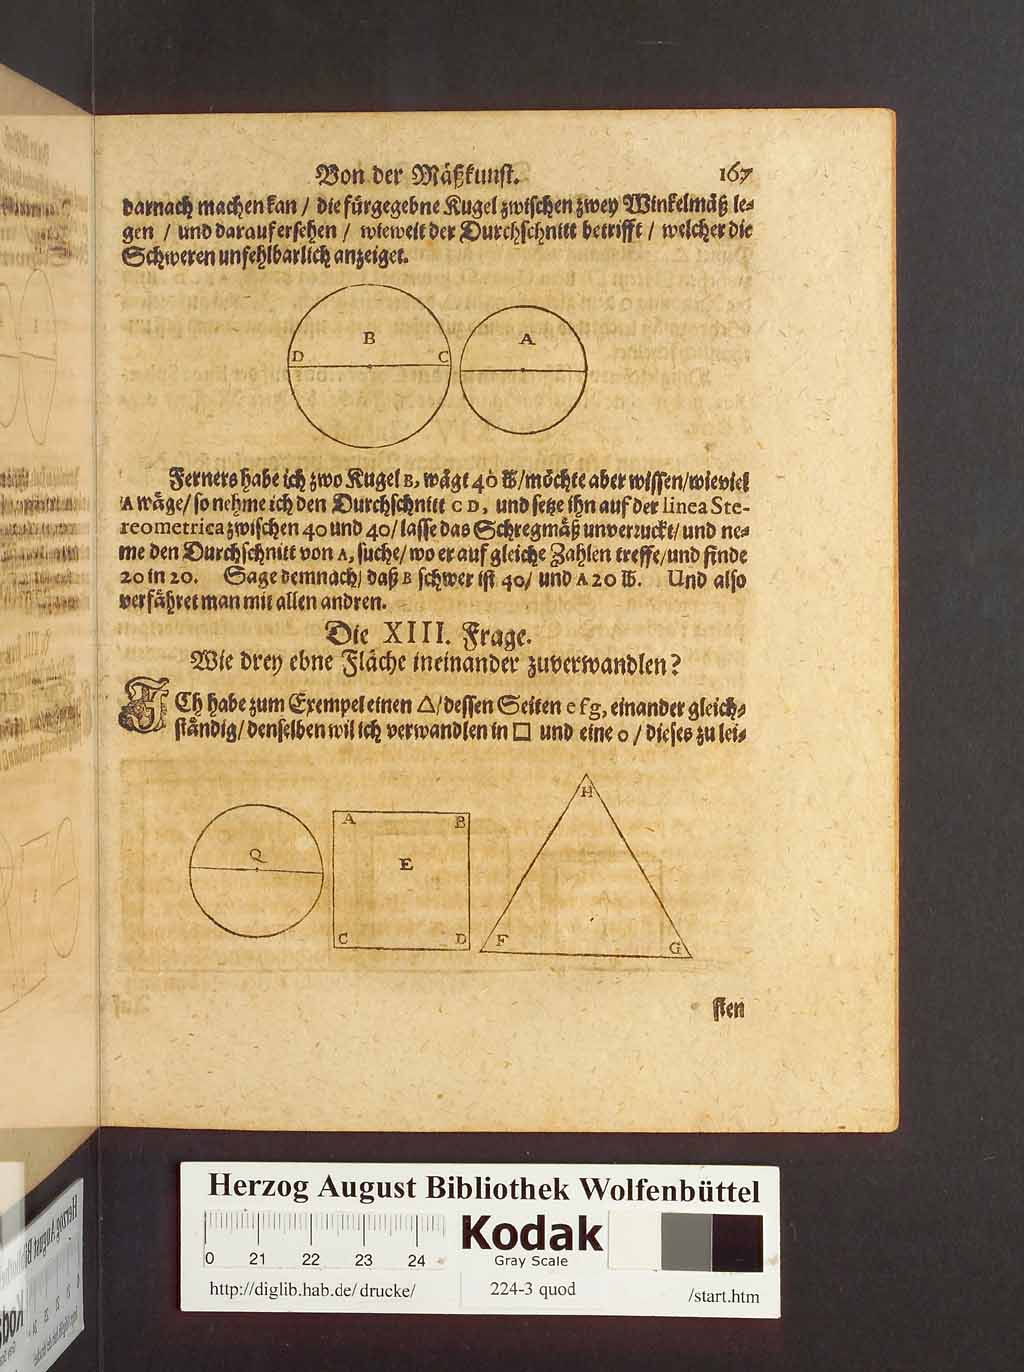 Von der Mäßkunst. 167
darnach machen kan / die fürgegebne Kugel zwischen zwey Winkelmäß le⸗
gen / und darauf ersehen / wieweit der Durchschnitt betrifft / welcher die
Schweren unfehlbarlich anzeiget.
B
A
D
C
Ferners habe ich zwo Kugel B, wägt 40 ℔/ möchte aber wissen/ wieviel
A wäge/ so nehme ich den Durchschnitt C D, und setze ihn auf der linea Ste-
reometrica zwischen 40 und 40/ lasse das Schregmäß unverzuckt/ und ne⸗
me den Durchschnitt von A, suche/ wo er auf gleiche Zahlen treffe/ und finde
20 in 20. Sage demnach/ daß B schwer ist 40/ und A 20 ℔. Und also
verfähret man mit allen andren.
Die XIII. Frage.
Wie drey ebne Fläche ineinander zuverwandlen?
ICh habe zum Exempel einen △/ dessen Seiten e f g, einander gleich⸗
ständig/ denselben wil ich verwandlen in □ und eine o / dieses zu lei⸗
H
A
B
Q
E
C
D
F
G
sten
Herzog August Bibliothek Wolfenbüttel
0 21 22 23 24
Kodak
Gray Scale
http://diglib.hab.de/drucke/ 224-3 quod /start.htm